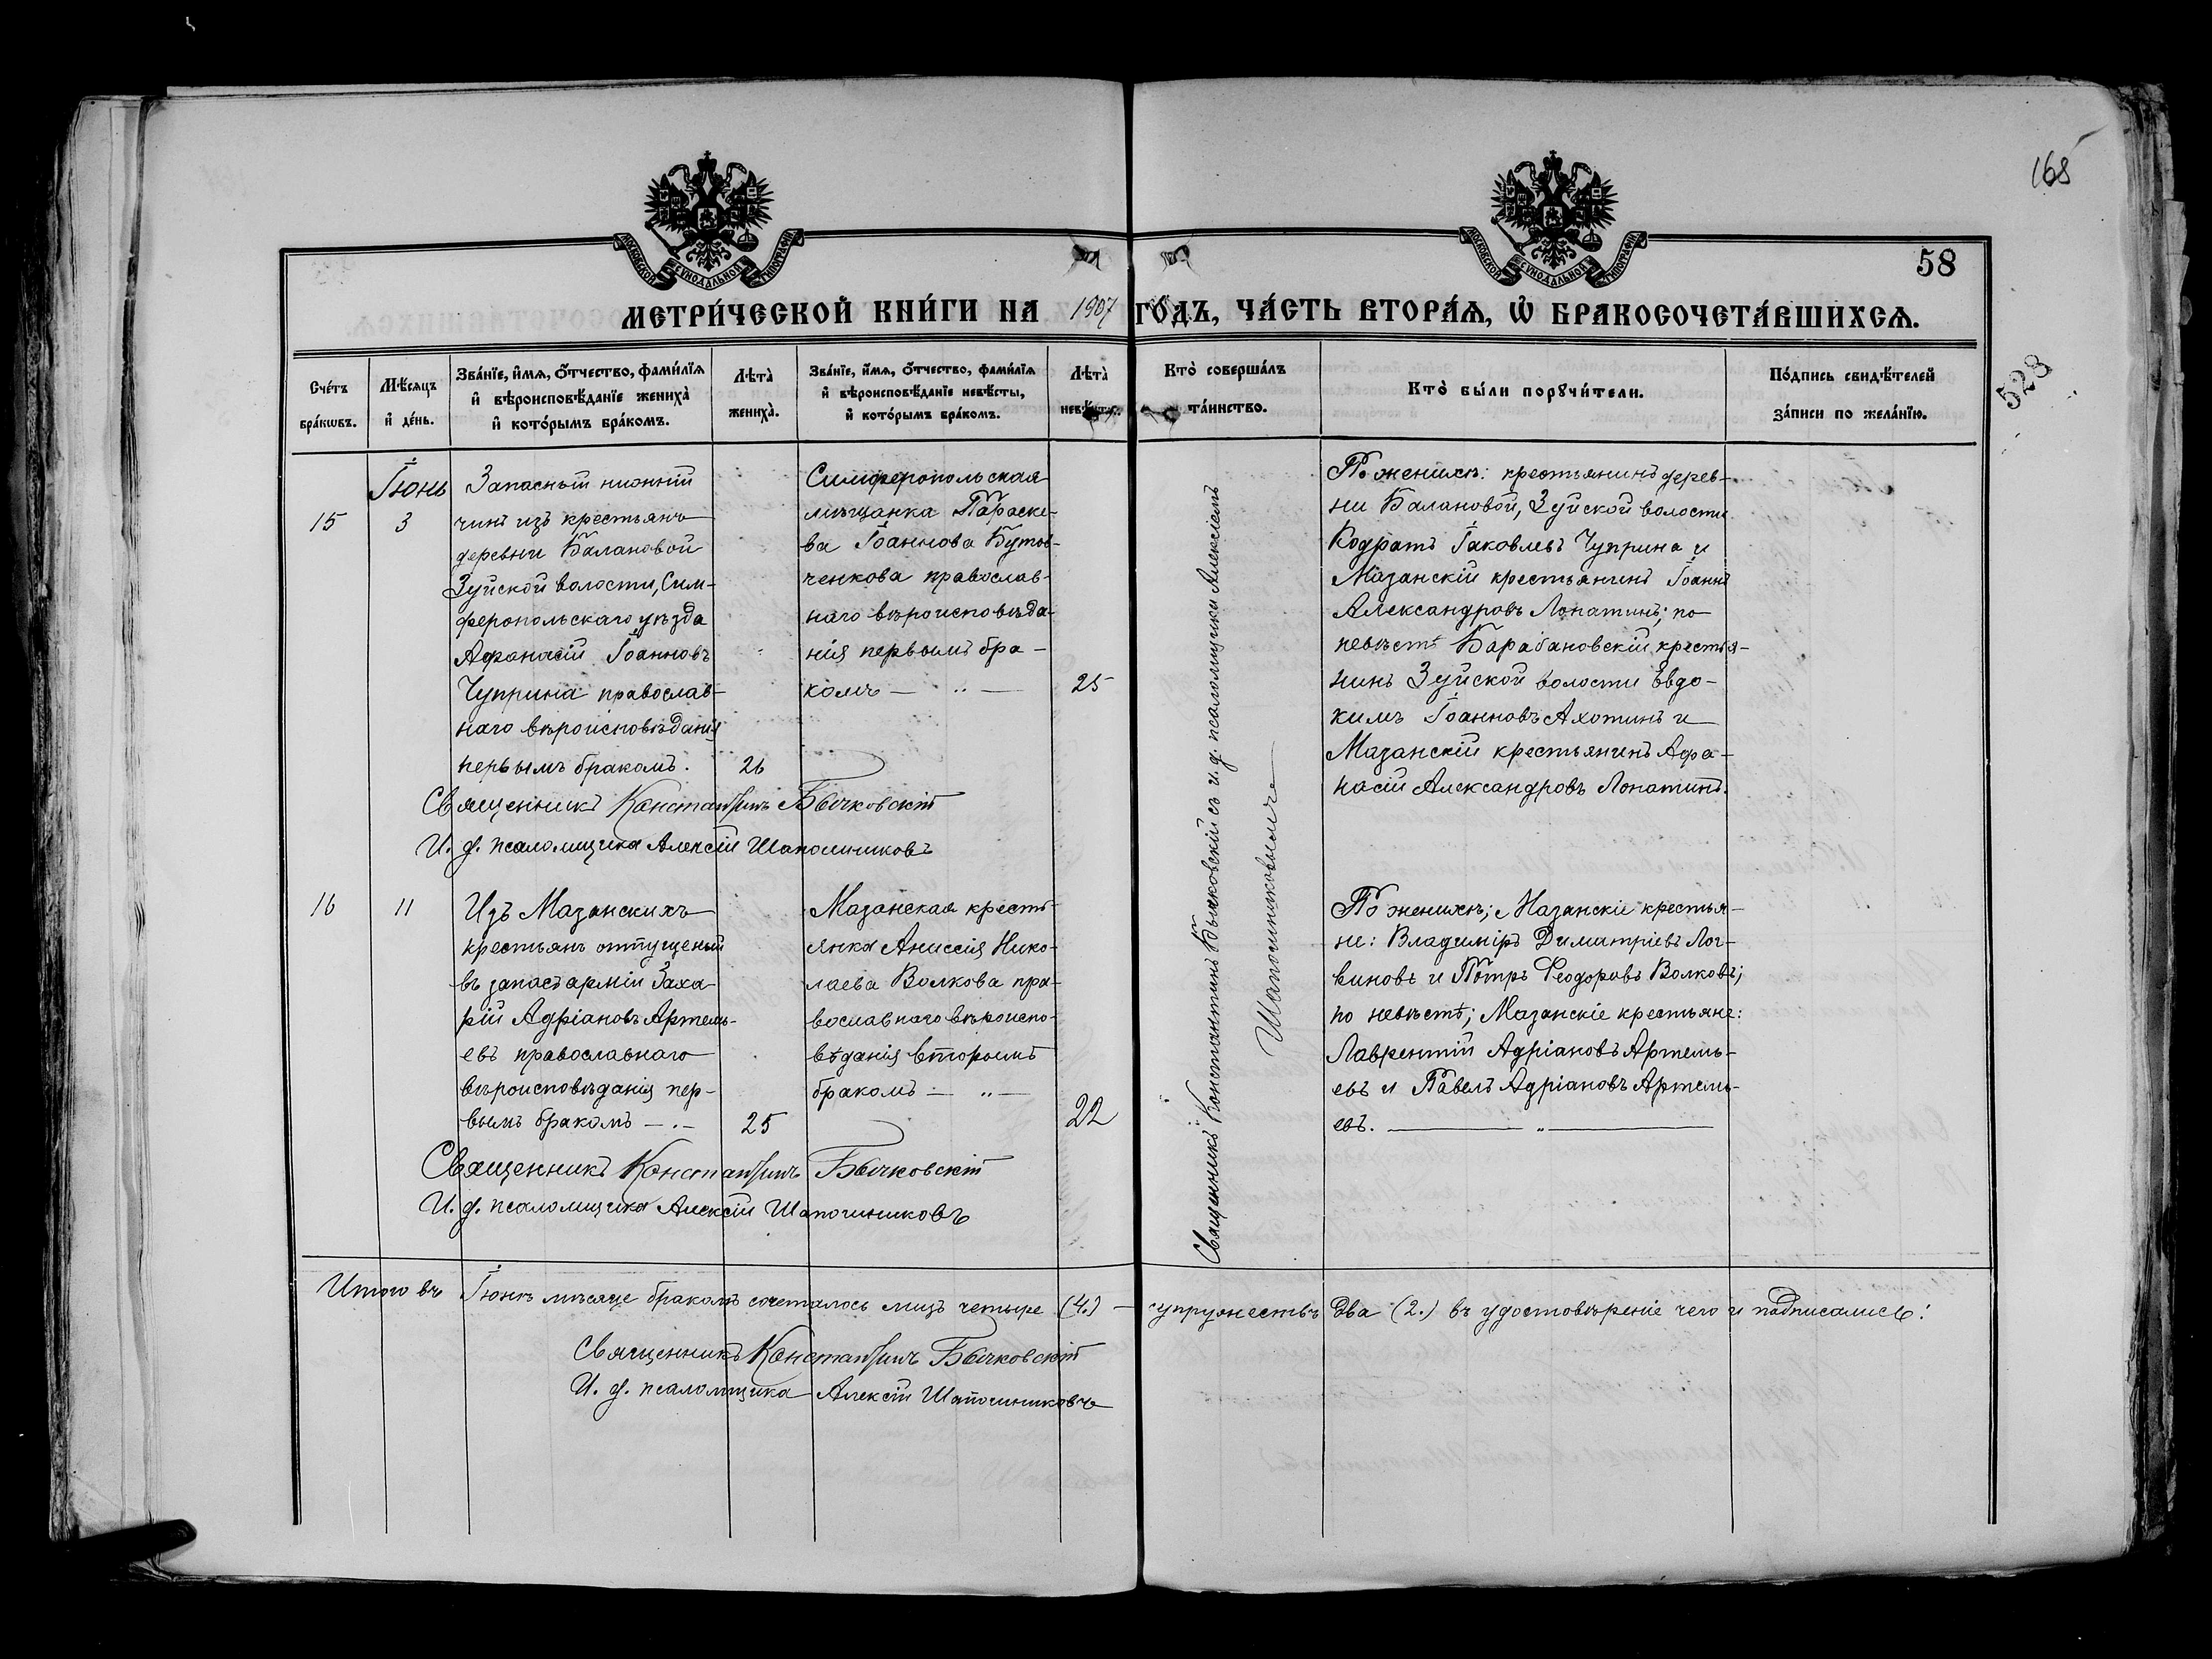 168
58
528
МОСКОВСКОЙ СѴНОДАЛЬНОЙ ТИПОГРАФІИ
МОСКОВСКОЙ СѴНОДАЛЬНОЙ ТИПОГРАФІИ
МЕТРИ́ЧЕСКОЙ КНИ́ГИ НА 1907 ГО́ДЪ, ЧА́СТЬ ВТОРА́Я, Ѡ БРАКОСОЧЕТА́ВШИХСЯ.
Сче́тъ
бра́кѡвъ.
Мѣ́сяцъ
и҆ де́нь.
Зва́нїе, и҆́мя, ѻ҆́тчество, фами́лїя
и҆ вѣроисповѣ́данїе жениха̀
и҆ кото́рымъ бра́комъ.
Лѣта̀
жениха̀.
Зва́нїе, и҆́мя, ѻ҆́тчество, фами́лїя
и҆ вѣроисповѣ́данїе невѣ́сты,
и҆ кото́рымъ бра́комъ.
Лѣта̀
невѣ́сты.
Кто̀ соверша́лъ
та́инство.
Кто̀ бы́ли порꙋчи́тели.
По́дпись свидѣ́телей
за́писи по жела́нїю.
15
Іюнь
3
Запасный нижній
чинъ изъ крестьянъ
деревни Балановой
Зуйской волости, Сим-
феропольскаго уѣзда
Афанасій Іоанновъ
Чуприна православ-
наго вѣроисповѣданія
первымъ бракомъ.
26
Симферопольская
мѣщанка Параске-
ва Іоаннова Бутов-
ченкова православ-
наго вѣроисповѣда-
нія первымъ бра-
комъ — „ —
25
Священникъ Константинъ Бычковскій съ и. д. псаломщика Алексіемъ
Шапошниковымъ
По женихѣ: крестьянинъ дерев-
ни Балановой, Зуйской волости
Кодратъ Іаковлевъ Чуприна и
Мазанскій крестьянинъ Іоаннъ
Александровъ Лопатинъ; по
невѣстѣ Барабановскій крестья-
нинъ Зуйской волости Евдо-
кимъ Іоанновъ Ахотинъ и
Мазанскій крестьянинъ Афа-
насій Александровъ Лопатинъ.
Священникъ Константинъ Бычковскій
И. д. псаломщика Алексій Шапошниковъ
16
11
Изъ Мазанскихъ
крестьянъ отпущеный
въ запасъ арміи Заха-
рій Адріановъ Артемь-
евъ православнаго
вѣроисповѣданія пер-
вымъ бракомъ — . —
25
Мазанская кресть-
янка Аниссія Нико-
лаева Волкова пра-
вославнаго вѣроиспо-
вѣданія вторымъ
бракомъ — „ —
22
По женихѣ; Мазанскіе крестья-
не: Владиміръ Димитріевъ Лог-
виновъ и Петръ Ѳеодоровъ Волковъ;
по невѣстѣ; Мазанскіе крестьяне:
Лаврентій Адріановъ Артемь-
евъ и Павелъ Адріановъ Артемь-
евъ. — „ —
Священникъ Константинъ Бычковскій
И. д. псаломщика Алексій Шапошниковъ
Итого въ Іюнѣ мѣсяце бракомъ сочеталось лицъ четыре (4.) — супружествъ два (2.) въ удостовѣреніе чего и подписались:
Священникъ Константинъ Бычковскій
И. д. псаломщика Алексій Шапошниковъ